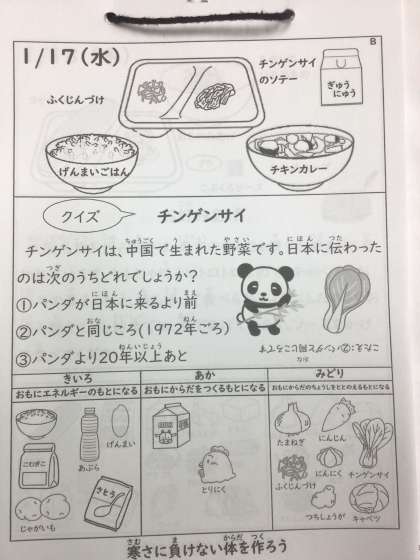 B
1/17(水)
ふくじんづけ
チンゲンサイ
のソテー
ぎゅう
にゅう
げんまいごはん
チキンカレー
クイズ
チンゲンサイ
チンゲンサイは、中国で生まれた野菜です。日本に伝わった
のは次のうちどれでしょうか?
①パンダが日本に来るより前
②パンダと同じころ(1972年ごろ)
③パンダより20年以上あと
こたえ:②パンダと同じころです
きいろ
おもにエネルギーのもとになる
こむぎこ
あぶら
げんまい
じゃがいも
さとう
あか
おもにからだをつくるもとになる
とりにく
みどり
おもにからだのちょうしをととのえるもとになる
たまねぎ
にんじん
ふくじんづけ
にんにく
チンゲンサイ
つちしょうが
キャベツ
寒さに負けない体を作ろう